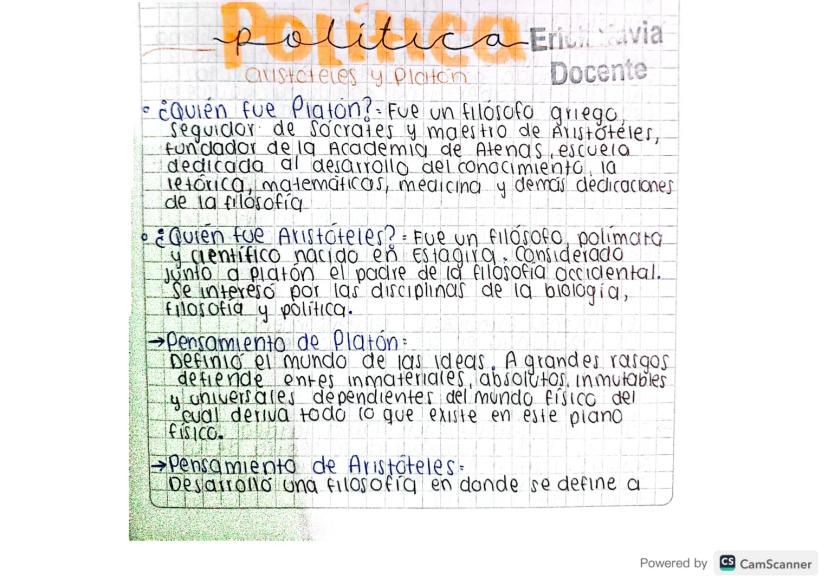 Política
política
Docente
aristóteles y Platón
¿Quién fue Platón?: Fue un filósofo griego,
seguidor de Sócrates y maestro de Aristóteles,
fundador de la Academia de Atenas, escuela
dedicada al desarrollo del conocimiento, la
retórica, matemáticas, medicina y demás dedicaciones
de la filosofía
¿Quién fue Aristóteles?: Fue un filósofo, polímata
y científico nacido en Estagira. Considerado
junto a Platón el padre de la filosofía occidental.
Se intereso por las disciplinas de la biología,
filosofía y política.
→Pensamiento de Platón:
Definió el mundo de las ideas. A grandes rasgos
defiende entes inmateriales, absolutos, inmutables
y universales dependientes del mundo físico del
cual deriva todo lo que existe en este plano
físico.
→Pensamiento de Aristóteles:
Desarrolló una filosofía en donde se define a
Powered by CS CamScanner